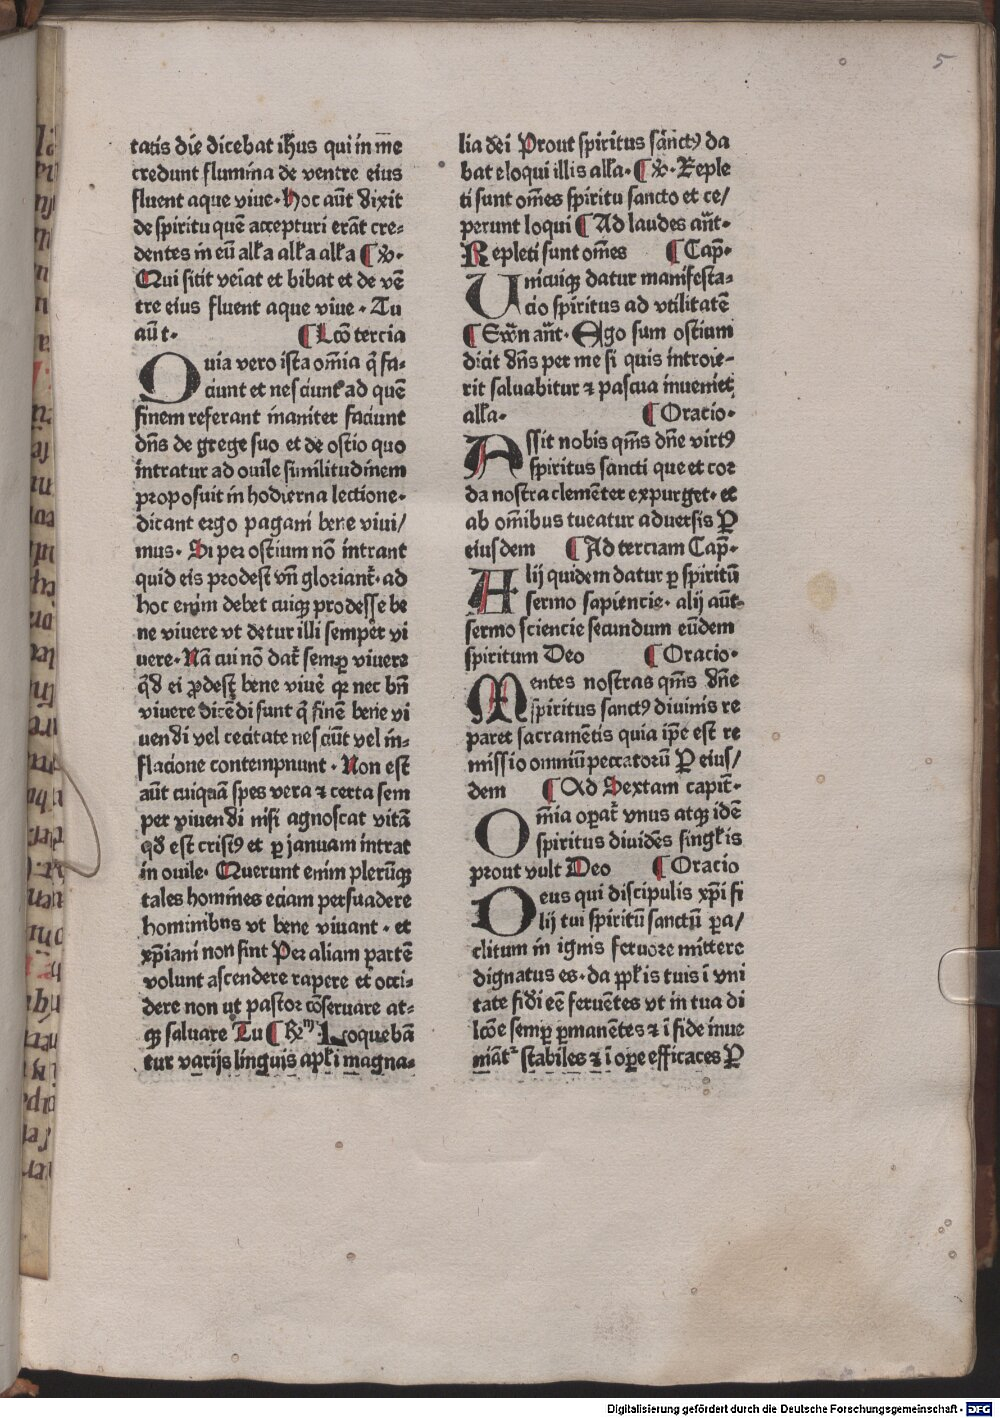 5
tatis die dicebat ihus qui in me
credunt flumina de ventre eius
fluent aque viue· Hoc aūt dixit
de spiritu quē accepturi erāt cre-
dentes in eū all'a all'a all'a ¶ v̄·
Qui sitit veiāt et bibat et de vē
tre eius fluent aque viue · Tu
aūt· ¶ Lcō tercia
Quia vero ista oīa q̄ fa-
ciunt et nesciunt ad quē
finem referant inaniter faciunt
dn̄s de grege suo et de ostio quo
intratur ad ouile similitudinem
proposuit in hodierna lectione·
dicant ergo pagani bene viui/
mus· Si per ostium nō intrant
quid eis prodest vn̄ gloriant̄· ad
hoc enim debet cuiqꝫ prodesse be
ne viuere vt detur illi semper vi
uere· Nā cui nō dat̄ semꝑ viuere
qd̄ ei ꝓdest bene viuē qꝛ nec bn̄
viuere dicēdi sunt q̄ finē bene vi
uendi vel cecitate nesciūt vel in-
flacione contempnunt · Non est
aūt cuiquā spes vera ⁊ certa sem
per viuendi nisi agnoscat vitā
qd̄ est cristꝰ et ꝑ januam intrat
in ouile· Querunt enim plerūqꝫ
tales homines eciam persuadere
hominibus vt bene viuant · et
xp̄iani non sint Per aliam partē
volunt ascendere rapere et occi-
dere non ut pastor cōseruare at-
qꝫ saluare Tu ¶ Rm̄· Loquebā
tur varijs linguis apl'i magna-
lia dei Prout spiritus sanctꝰ da
bat eloqui illis all'a· ¶ v̄· Reple
ti sunt om̄es spiritu sancto et ce/
perunt loqui ¶ Ad laudes an̄t·
Repleti sunt om̄es ¶ Cap̄·
Unicuiqꝫ datur manifesta-
cio spiritus ad vtilitatē
¶ Sw̄n an̄t· Ego sum ostium
dicit dn̄s per me si quis introie-
rit saluabitur ⁊ pascua inueniet
all'a· ¶ Oracio·
Assit nobis qm̄s dn̄e virtꝰ
spiritus sancti que et cor
da nostra clemēter expurget· et
ab om̄ibus tueatur aduersis P̄
eiusdem ¶ Ad terciam Cap̄·
Alij quidem datur ꝑ spiritū
sermo sapiencie· alij aūt
sermo sciencie secundum eūdem
spiritum Deo ¶ Oracio·
Mentes nostras qm̄s dn̄e
spiritus sanctꝰ diuinis re
paret sacramētis quia ip̄e est re
missio omniū peccatorū P̄ eius/
dem ¶ Ad Sextam capit̄·
Om̄ia oꝑat̄ vnus atqꝫ idē
spiritus diuidēs singl'is
prout vult Deo ¶ Oracio
Deus qui discipulis xp̄i fi
lij tui spiritū sanctū ꝑa/
clitum in ignis feruore mittere
dignatus es· da ppl'is tuis ī vni
tate fidi eē feruētes vt in tua di
lcōe semꝑ ꝑmanētes ⁊ ī fide inue
niāt̄ stabiles ⁊ ī oꝑe efficaces P̄
Digitalisierung gefördert durch die Deutsche Forschungsgemeinschaft · DFG